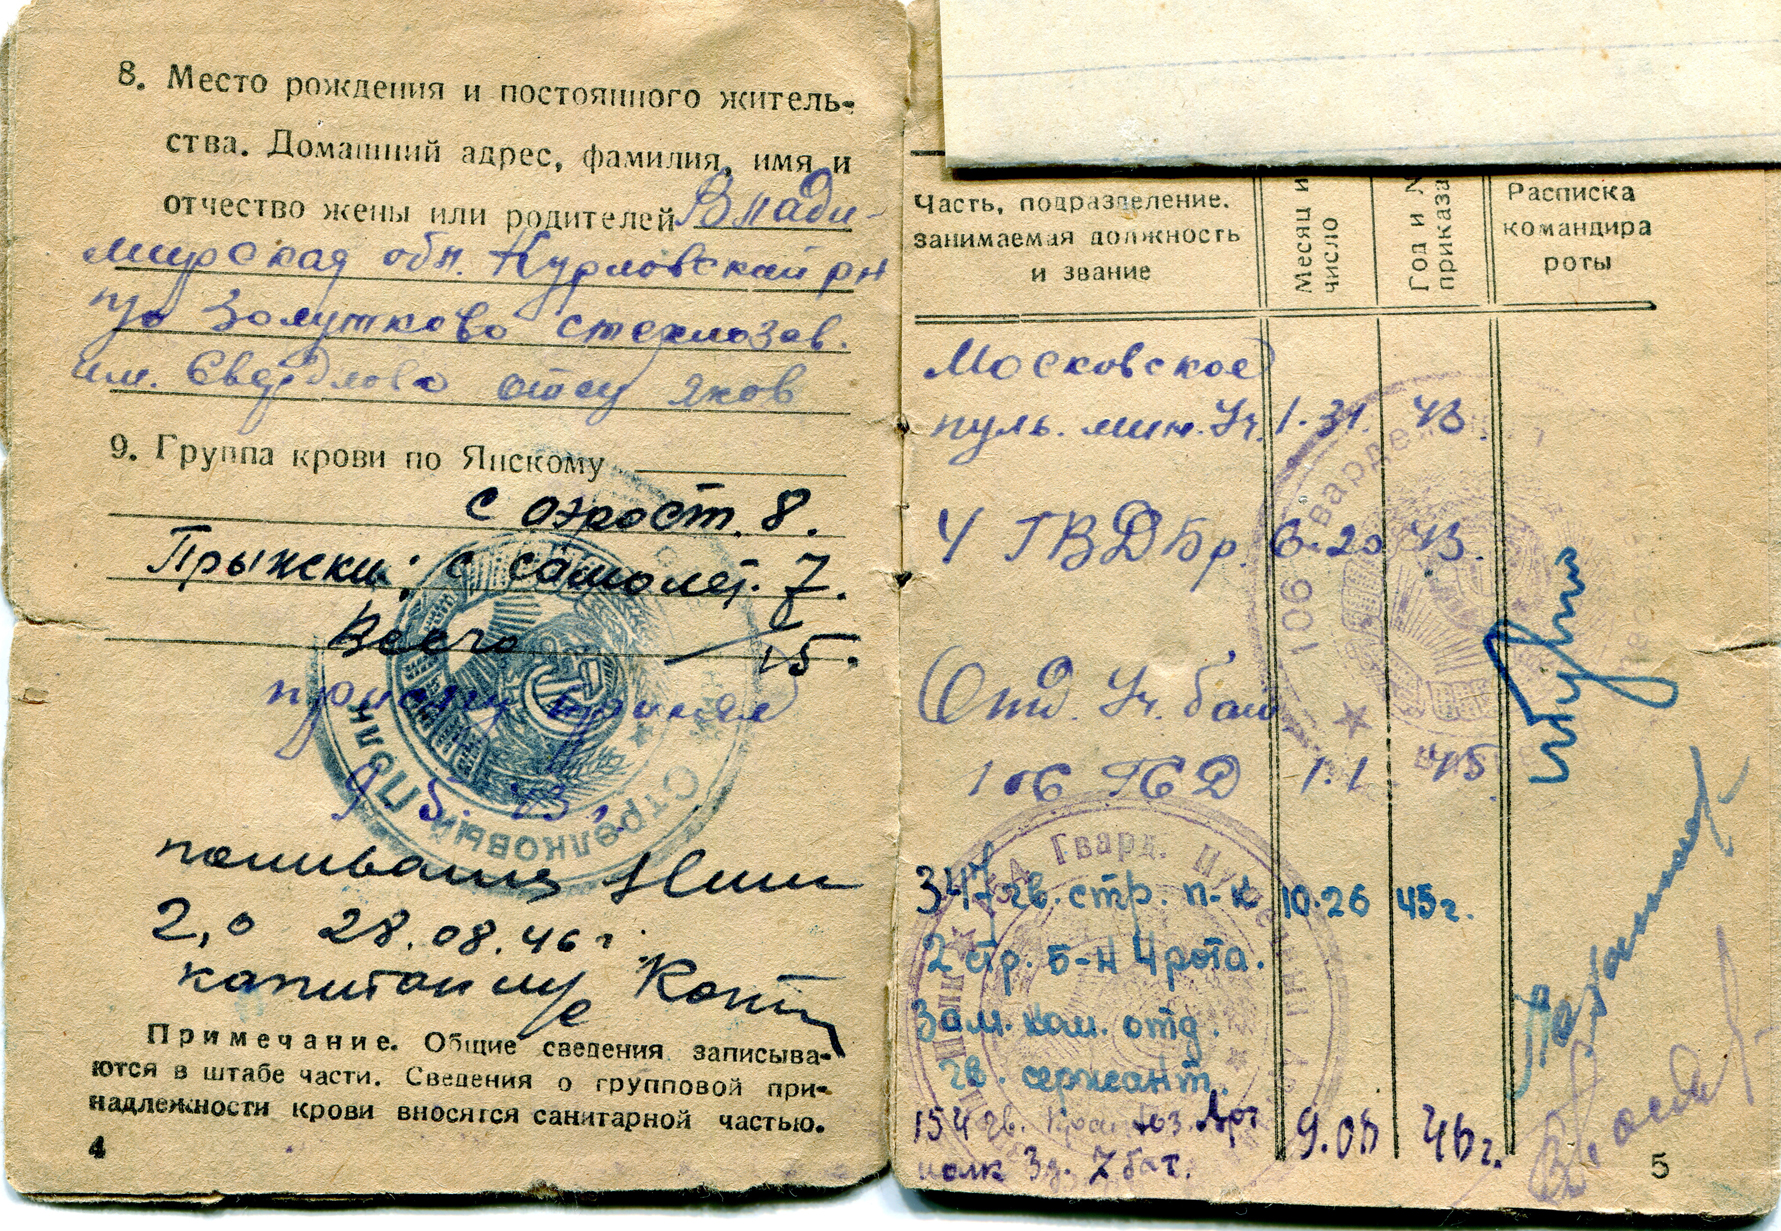 8. Место рождения и постоянного житель-
ства. Домашний адрес, фамилия, имя и
отчество жены или родителей Влади-
мирская обл. Курловский рн
п/о Золутково стеклозав.
им. Свердлова отец Яков
9. Группа крови по Янскому
с аэрост. 8.
Прыжки: с самолет. 7.
Всего 15.
присягу принял
9 5. 43
Стрелковый Полк
2,0 28.08.46 г.
капитан
Примечание. Общие сведения записыва-
ются в штабе части. Сведения о групповой при-
надлежности крови вносятся санитарной частью.
4
Часть, подразделение,
занимаемая должность
и звание
Месяц и
число
Год и №
приказа
Расписка
командира
роты
Московское
пуль. мин. Уч. 1.31. 43.
4 ГВДБр. 6.20 43.
Отд. Уч. бат
106 ГСД 1.1 45
106 Гвардейск
347 гв. стр. п-к 10.26 45г.
2 стр. б-н 4 рота.
Зам. ком. отд.
гв. сержант.
154 гв. Арт 9.05 46г.
полк 7 бат.
Гвард.
5